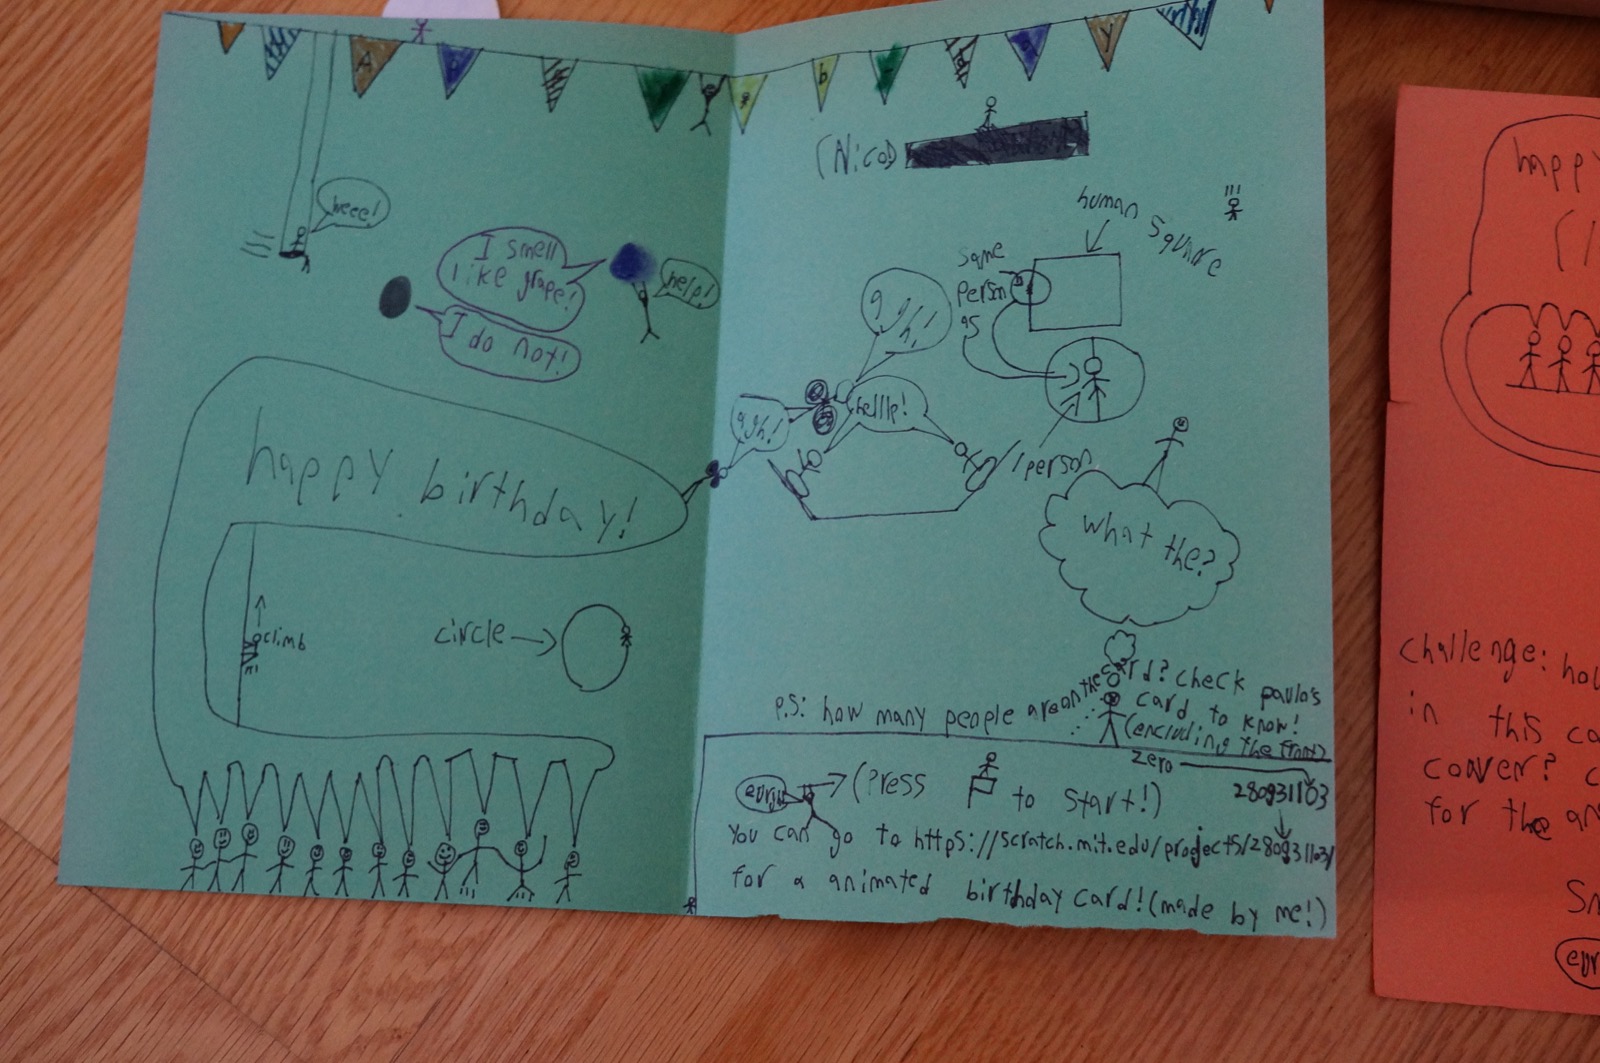 A
b
Y
(Nico)
heee!
I smell
like grape!
help!
I do not!
human square
same
person
as
ugh!
ugh!
helllp!
1 person
what the?
happy birthday!
climb
circle
p.s: how many people are on the card? check paulo's
card to know!
(encluding the front)
zero
280931103
(Press to start!)
You can go to https://scratch.mit.edu/projects/280931103/
for a animated birthday card! (made by me!)
happy
challenge: how
in this ca
conver?
for the an